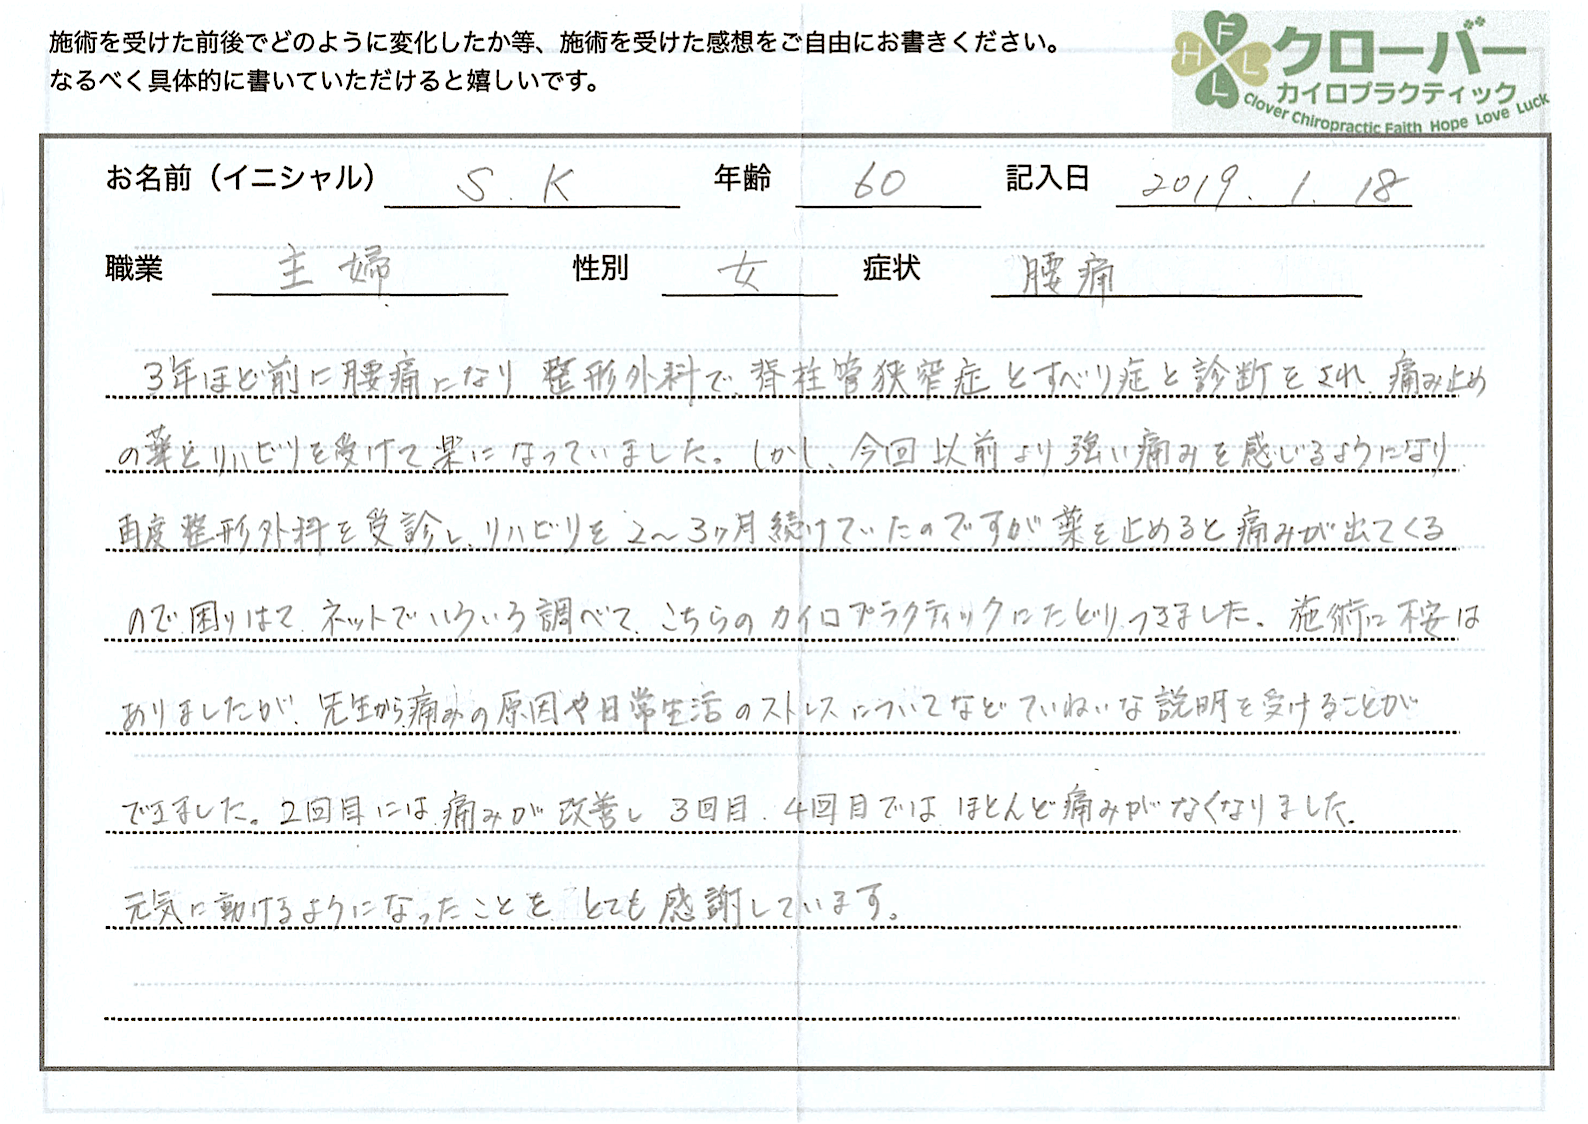 施術を受けた前後でどのように変化したか等、施術を受けた感想をご自由にお書きください。
なるべく具体的に書いていただけると嬉しいです。
F
H L
L
クローバー
カイロプラクティック
Clover Chiropractic Faith Hope Love Luck
お名前（イニシャル） S.K 年齢 60 記入日 2019.1.18
職業 主婦 性別 女 症状 腰痛
3年ほど前に腰痛になり 整形外科で、脊柱管狭窄症とすべり症と診断をされ、痛み止め
の薬とリハビリを受けて楽になっていました。しかし、今回以前より強い痛みを感じるようになり
再度整形外科を受診し、リハビリを2〜3ヶ月続けていたのですが薬を止めると痛みが出てくる
ので困りはて、ネットでいろいろ調べて、こちらのカイロプラクティックにたどりつきました。施術に不安は
ありましたが、先生から痛みの原因や日常生活のストレスについてなどていねいな説明を受けることが
できました。2回目には痛みが改善し 3回目、4回目では、ほとんど痛みがなくなりました。
元気に動けるようになったことを、とても感謝しています。